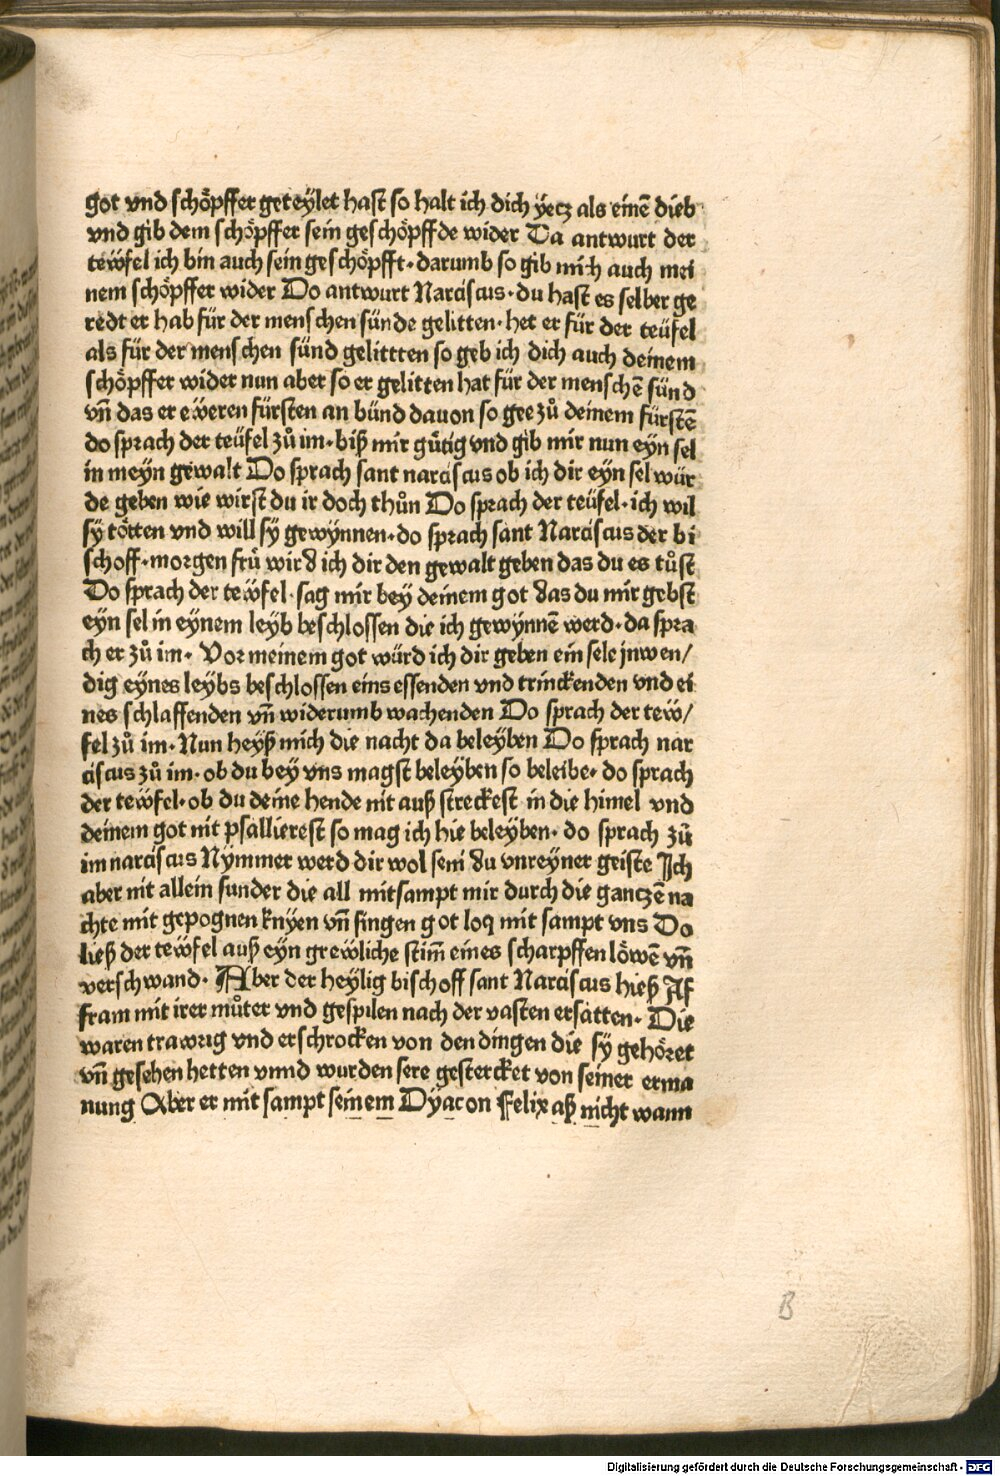 got vnd schöpffer geteylet hast so halt ich dich yecz als einē dieb
vnd gib dem schöpffer sein geschöpffde wider Da antwurt der
tewfel ich bin auch sein geschöpfft· darumb so gib mich auch mei
nem schöpffer wider Do antwurt Narciscus· du hast es selber ge
redt er hab für der menschen sünde gelitten· het er für der teüfel
als für der menschen sünd gelittten so geb ich dich auch deinem
schöpffer wider nun aber so er gelitten hat für der menschē sünd
vn̄ das er eweren fürsten an bünd dauon so gee zů deinem fürstē
do sprach der teüfel zů im· biß mir gütig vnd gib mir nun eyn sel
in meyn gewalt Do sprach sant narciscus ob ich dir eyn sel wür
de geben wie wirst du ir doch thůn Do sprach der teüfel· ich wil
sy tötten vnd will sy gewynnen· do sprach sant Narciscus der bi
schoff· morgen frü wird ich dir den gewalt geben das du es tůst
Do sprach der tewfel· sag mir bey deinem got das du mir gebst
eyn sel in eynem leyb beschlossen die ich gewynnē werd· da spra
ch er zů im· Vor meinem got würd ich dir geben ein sele jnwen/
dig eynes leybs beschlossen eins essenden vnd trinckenden vnd ei
nes schlaffenden vn̄ widerumb wachenden Do sprach der tew/
fel zů im· Nun heyß mich die nacht da beleyben Do sprach nar
ciscus zů im· ob du bey vns magst beleyben so beleibe· do sprach
der tewfel· ob du deine hende nit auß streckest in die himel vnd
deinem got nit psallierest so mag ich hie beleyben· do sprach zů
im narciscus Nymmer werd dir wol sein du vnreyner geiste Ich
aber nit allein sunder die all mitsampt mir durch die ganczē na
chte mit gepognen knyen vn̄ singen got loq mit sampt vns Do
ließ der tewfel auß eyn grewliche stim̄ eines scharpffen löwē vn̄
verschwand· Aber der heylig bischoff sant Narciscus hieß Af
fram mit irer můter vnd gespilen nach der vasten ersatten· Die
waren trawrig vnd erschrocken von den dingen die sy gehöret
vn̄ gesehen hetten vnnd wurden sere gestercket von seiner erma
nung Aber er mit sampt seinem Dyacon Felix aß nicht wann
B
Digitalisierung gefördert durch die Deutsche Forschungsgemeinschaft - DFG